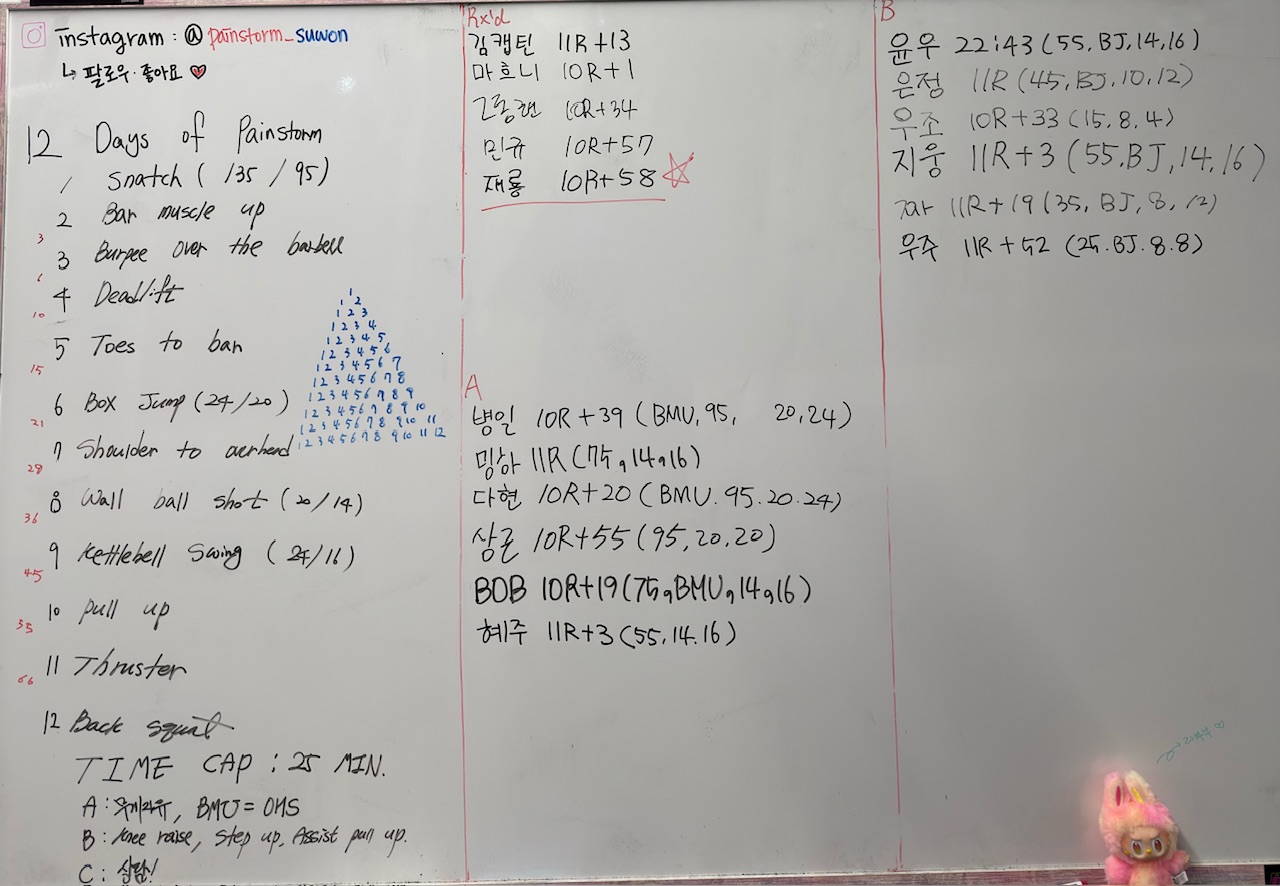 instagram : @painstorm_suwon
↳ 팔로우·좋아요 ♥
12 Days of Painstorm
1 Snatch ( 135 / 95)
2 Bar muscle up
3
3 Burpee over the barbell
6
4 Deadlift
10
5 Toes to bar
15
6 Box Jump (24/20)
21
7 Shoulder to overhead
28
8 Wall ball shot (20/14)
36
9 Kettlebell Swing (24/16)
45
10 pull up
55
11 Thruster
66
12 Back squat
TIME CAP : 25 MIN.
A : 무게자유, BMU = OHS
B : Knee raise, Step up, Assist pull up.
C : 상담!
1
1 2
1 2 3
1 2 3 4
1 2 3 4 5
1 2 3 4 5 6
1 2 3 4 5 6 7
1 2 3 4 5 6 7 8
1 2 3 4 5 6 7 8 9
1 2 3 4 5 6 7 8 9 10
1 2 3 4 5 6 7 8 9 10 11
1 2 3 4 5 6 7 8 9 10 11 12
Rx'd
김캡틴 11R+13
마흐니 10R+1
10R+34
민규 10R+57
재룡 10R+58 ☆
A
병일 10R+39 (BMU, 95, 20, 24)
밍하 11R (75, 14, 16)
다현 10R+20 (BMU. 95. 20. 24)
상근 10R+55 (95, 20, 20)
BOB 10R+19 (75, BMU, 14, 16)
혜주 11R+3 (55. 14. 16)
B
윤우 22:43 (55, BJ, 14, 16)
은정 11R (45, BJ, 10, 12)
우조 10R+33 (15. 8. 4)
지웅 11R+3 (55. BJ, 14, 16)
11R+19 (35, BJ, 8, 12)
우주 11R+52 (25. BJ. 8. 8)
라부부 ♡